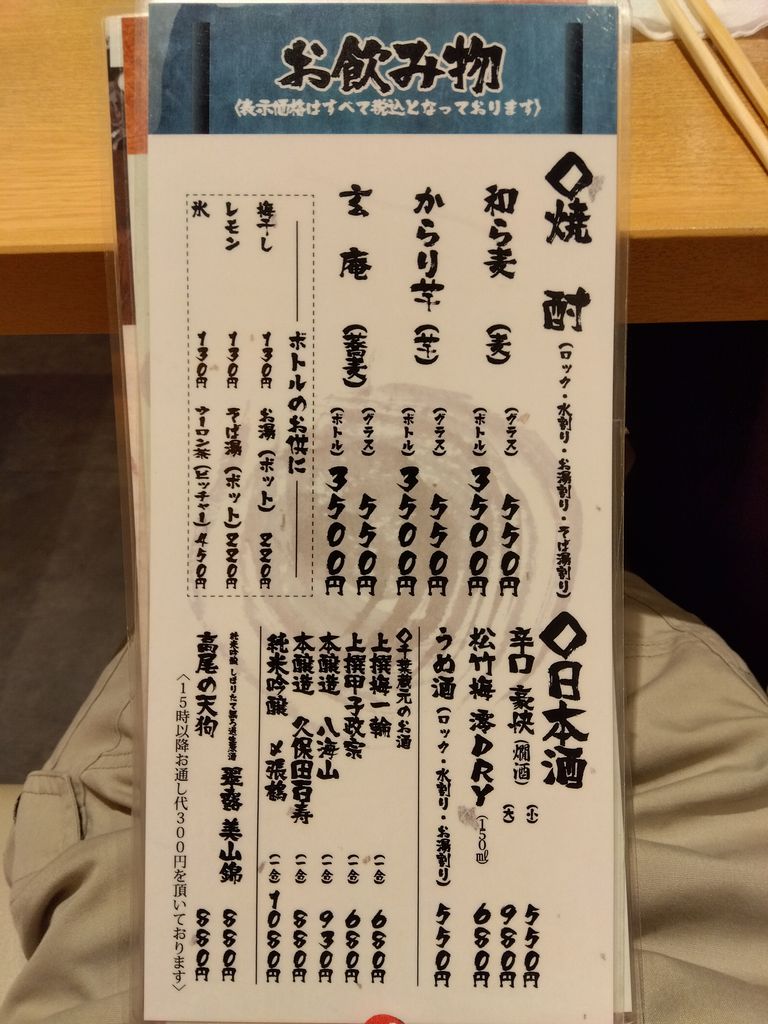 お飲み物
〈表示価格はすべて税込となっております〉
◇焼酎(ロック・水割り・お湯割り・そば湯割り)
和ら麦 (麦) (グラス) 550円
(ボトル) 3500円
からり芋 (芋) (グラス) 550円
(ボトル) 3500円
玄庵 (蕎麦) (グラス) 550円
(ボトル) 3500円
ボトルのお供に
梅干し 130円 お湯(ポット) 220円
レモン 130円 そば湯(ポット) 220円
氷 130円 ウーロン茶(ピッチャー) 450円
◇日本酒
辛口 豪快(燗酒) (小) 550円
(大) 980円
松竹梅 澪DRY(150ml) 680円
うめ酒(ロック・水割り・お湯割り) 550円
◇千葉蔵元のお酒
上撰梅一輪 (一合) 680円
上撰甲子政宗 (一合) 680円
本醸造 八海山 (一合) 930円
本醸造 久保田百寿 (一合) 880円
純米吟醸 〆張鶴 (一合) 1080円
純米吟醸 しぼりたて 生原酒 翠露 美山錦 880円
高尾の天狗 880円
〈15時以降お通し代300円を頂いております〉